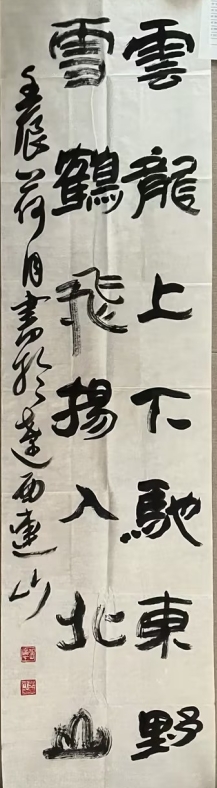 雲龍上下馳東野
雪鶴飛揚入北山
壬辰荷月書於遼西蓮山